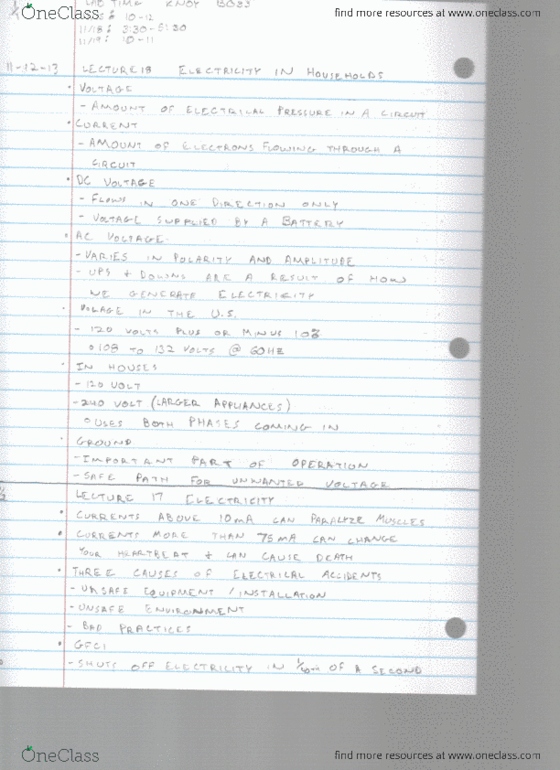 OneClass
find more resources at www.oneclass.com
LAB TIME KNOY B033
: 10-12
11/18: 3:30-5:30
11/19: 10-11
11-12-13 LECTURE 18 ELECTRICITY IN HOUSEHOLDS
• VOLTAGE
- AMOUNT OF ELECTRICAL PRESSURE IN A CIRCUIT
• CURRENT
- AMOUNT OF ELECTRONS FLOWING THROUGH A
CIRCUIT
• DC VOLTAGE
- FLOWS IN ONE DIRECTION ONLY
- VOLTAGE SUPPLIED BY A BATTERY
• AC VOLTAGE
- VARIES IN POLARITY AND AMPLITUDE
- UPS + DOWNS ARE A RESULT OF HOW
WE GENERATE ELECTRICITY
• VOLAGE IN THE U.S.
- 120 VOLTS PLUS OR MINUS 10%
o 108 TO 132 VOLTS @ 60HZ
• IN HOUSES
- 120 VOLT
- 240 VOLT (LARGER APPLIANCES)
o USES BOTH PHASES COMING IN
• GROUND
- IMPORTANT PART OF OPERATION
- SAFE PATH FOR UNWANTED VOLTAGE
LECTURE 17 ELECTRICITY
• CURRENTS ABOVE 10mA CAN PARALYZE MUSCLES
• CURRENTS MORE THAN 75mA CAN CHANGE
YOUR HEARTBEAT + CAN CAUSE DEATH
• THREE CAUSES OF ELECTRICAL ACCIDENTS
- UNSAFE EQUIPMENT / INSTALLATION
- UNSAFE ENVIRONMENT
- BAD PRACTICES
• GFCI
- SHUTS OFF ELECTRICITY IN 1/40th OF A SECOND
OneClass
find more resources at www.oneclass.com